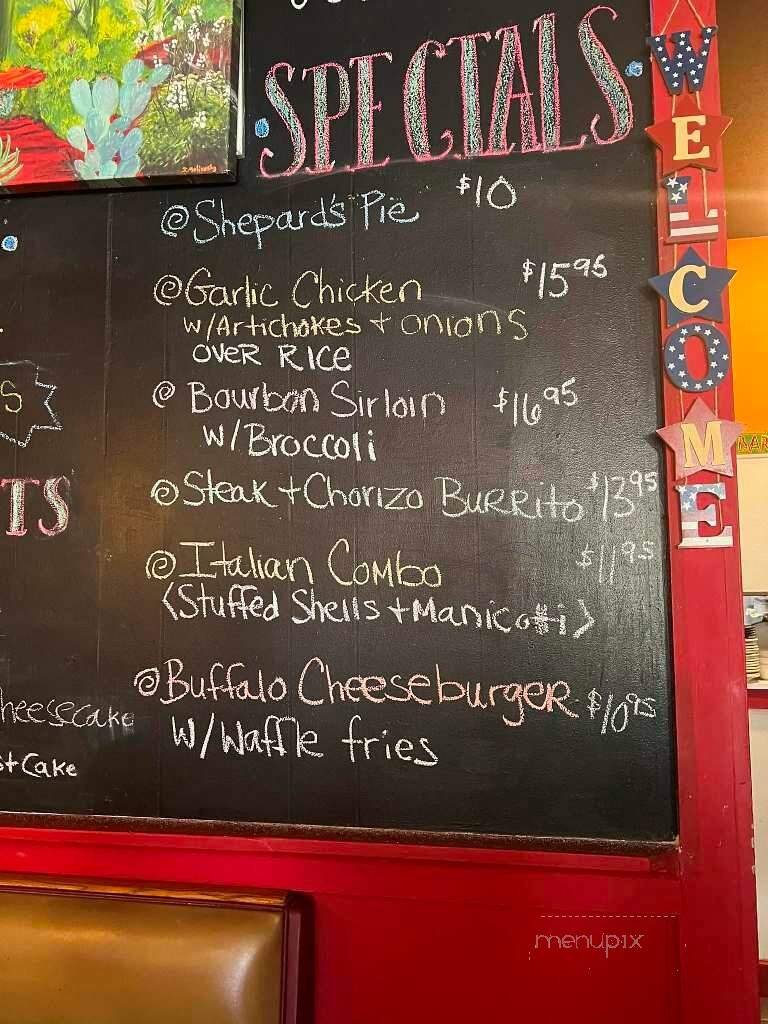 SPECIALS
@Shepard's Pie $10
@Garlic Chicken $15.95
w/Artichokes + onions
over Rice
@ Bourbon Sirloin $16.95
w/Broccoli
@Steak + Chorizo Burrito $13.95
@Italian Combo $11.95
(Stuffed Shells + Manicotti)
@Buffalo Cheeseburger $10.95
w/Waffle fries
S
TS
heesecake
st Cake
WELCOME
menupix